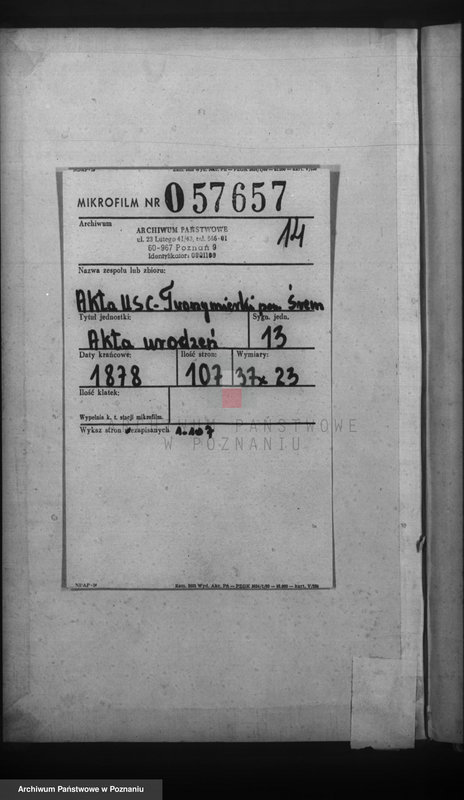 MIKROFILM NR 057657
Archiwum
14
ARCHIWUM PAŃSTWOWE
ul. 23 Lutego 41/43, tel. 546-01
60-967 Poznań 9
Identyfikator: 0921109
Nazwa zespołu lub zbioru:
Akta U.S.C. pow. Śrem
Tytuł jednostki: Sygn. jedn.
Akta urodzeń 13
Daty krańcowe: Ilość stron: Wymiary:
1878 107 37x23
Ilość klatek:
Wypełnia k. t. stacji mikrofilm.
Wykaz stron 1-107
PAŃSTWOWE
W POZNANIU
Archiwum Państwowe w Poznaniu